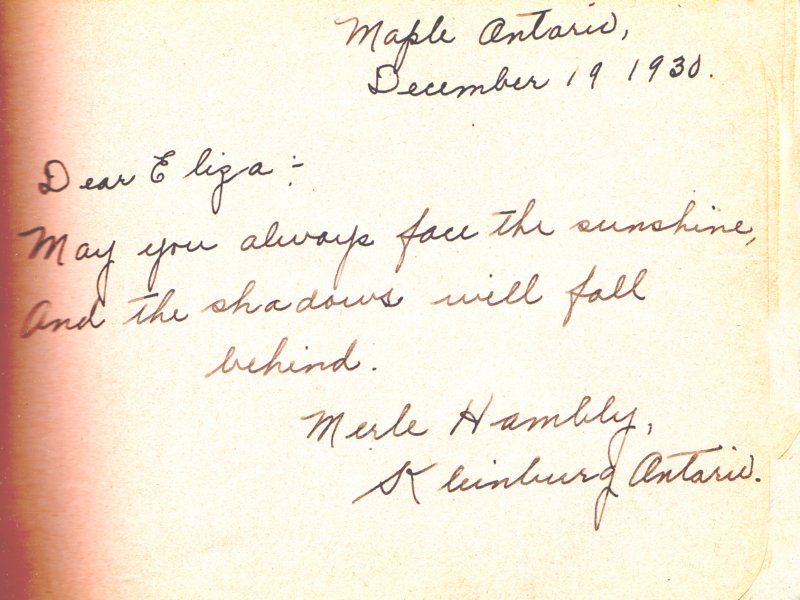 Maple Ontario,
December 19 1930.
Dear Eliza :-
May you always face the sunshine,
And the shadows will fall
behind.
Merle Hambly,
Kleinburg Ontario.